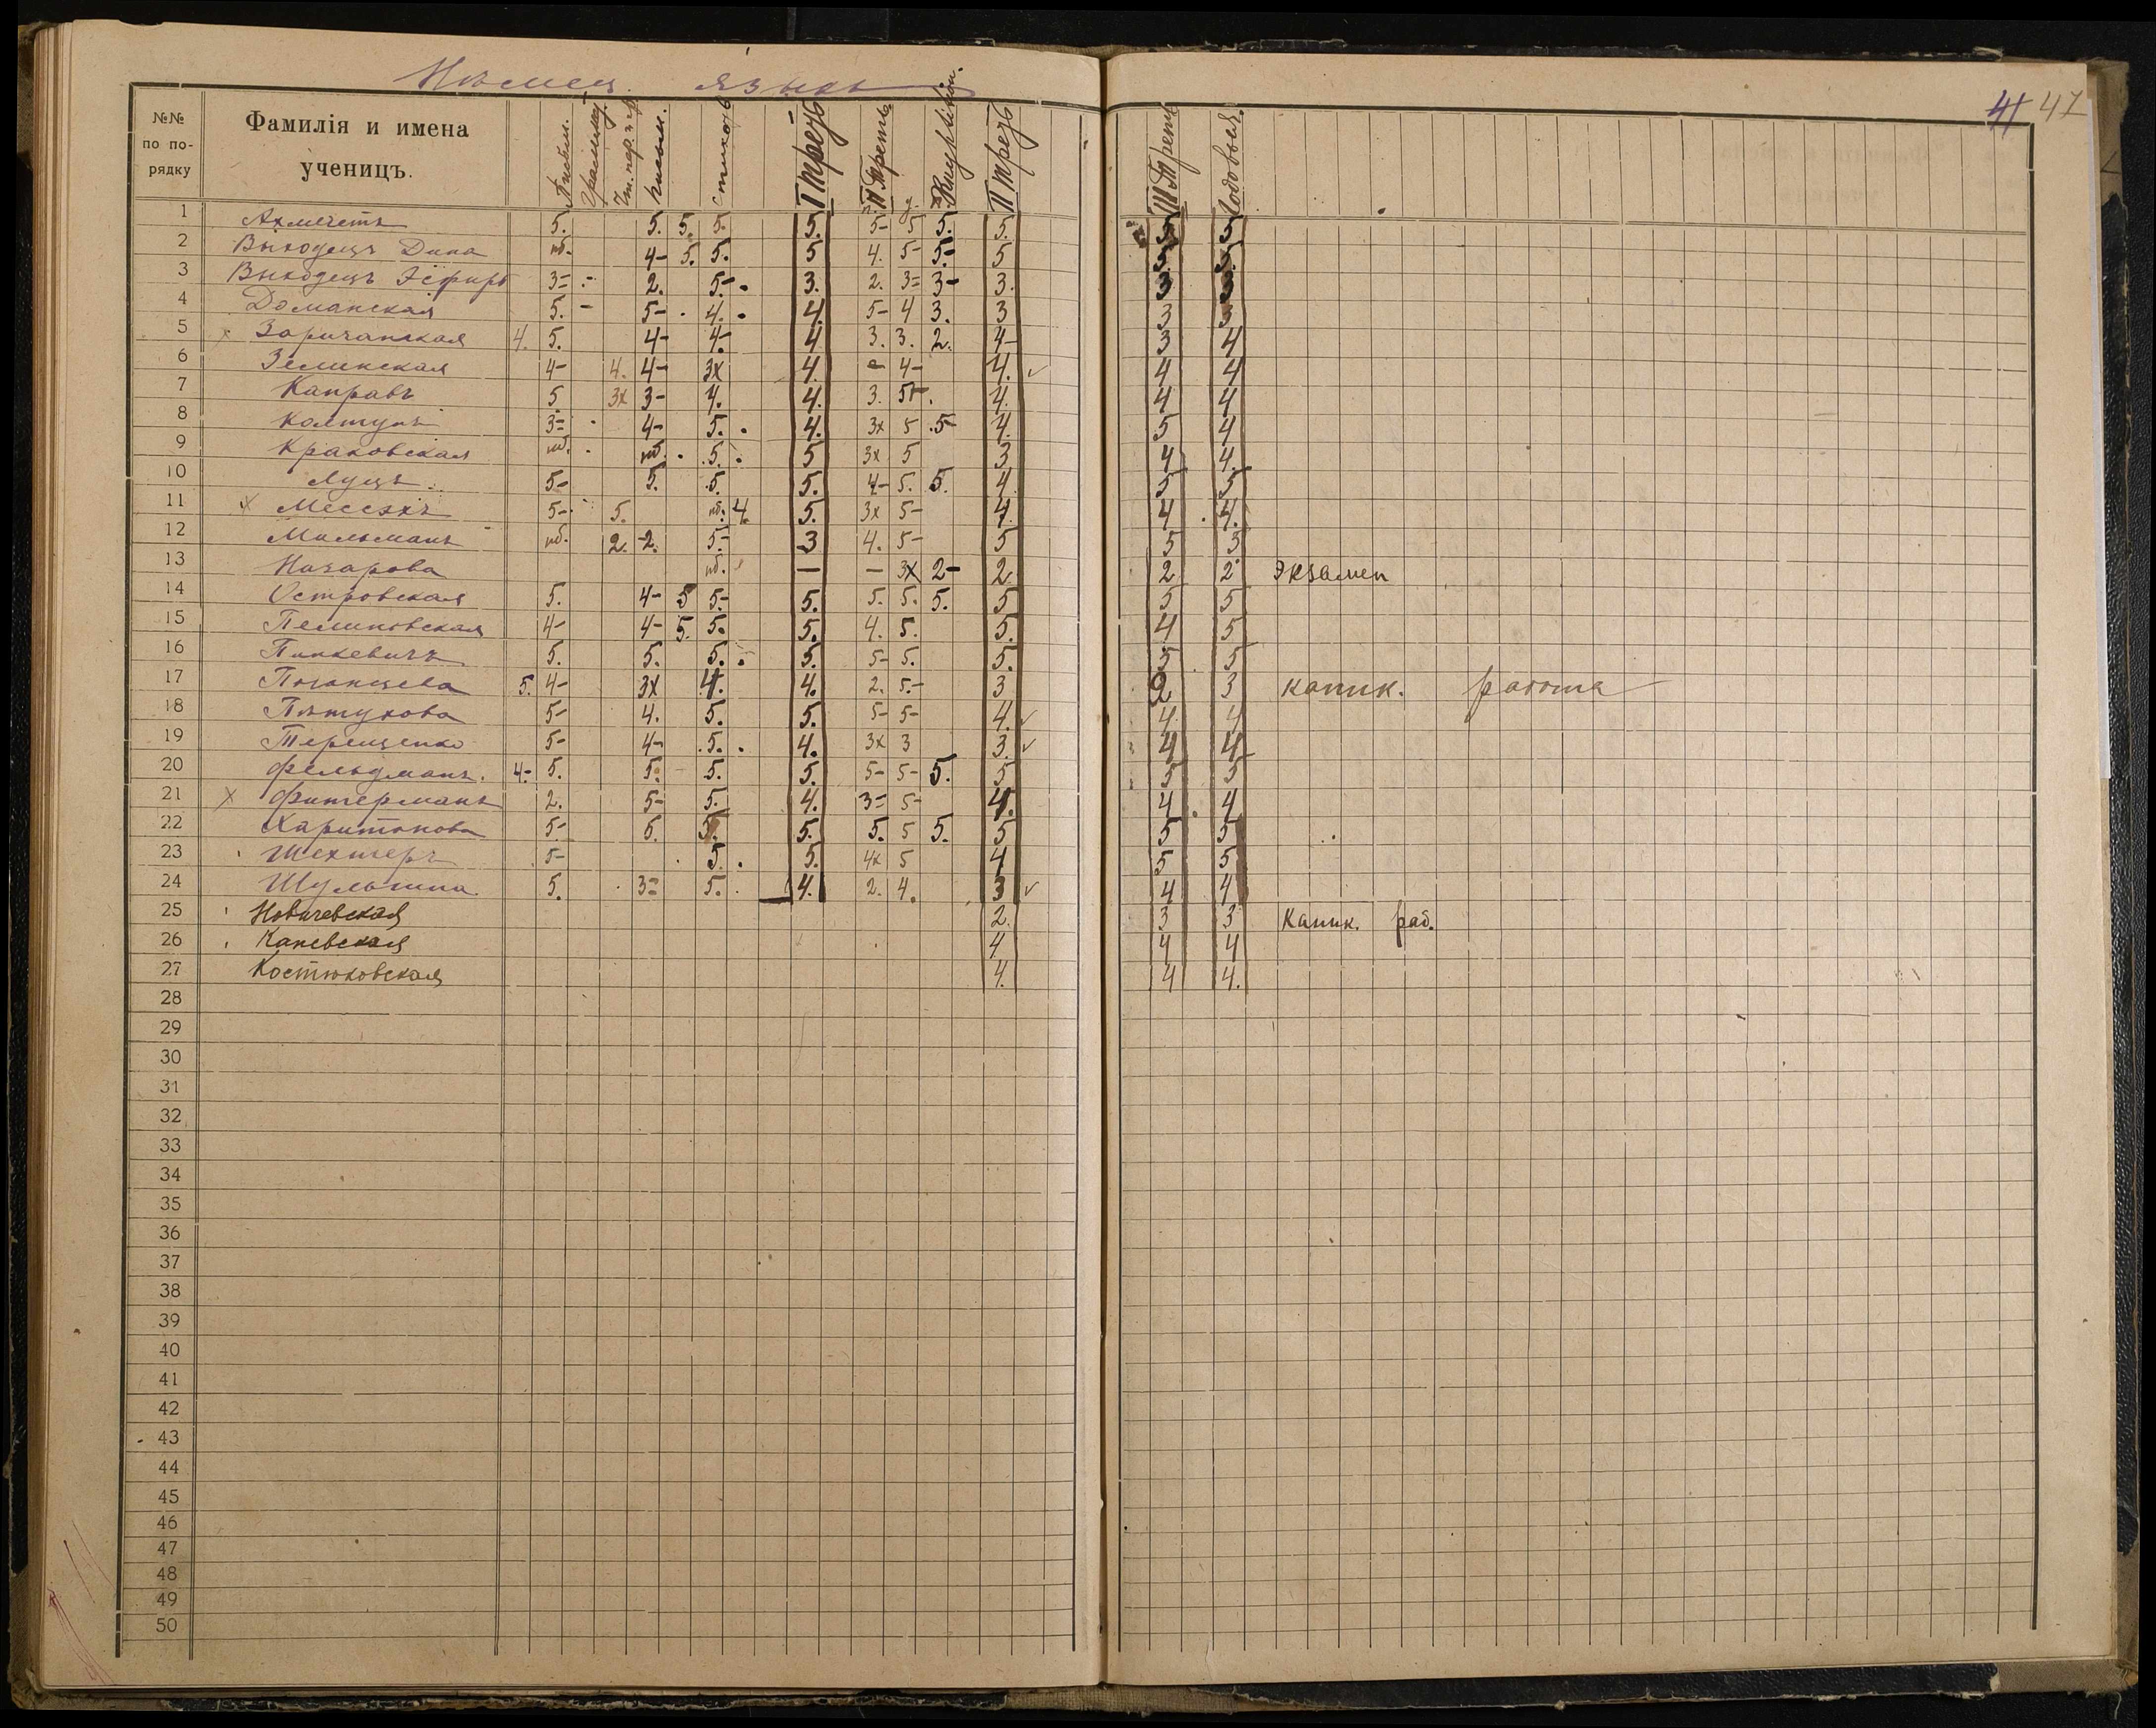 Нѣмец. языкъ
41 47
№№ по по-рядку Фамилія и имена ученицъ. Письм. I треть II треть II треть III треть Годовыя.
1 Ахмететь 5. 5. 5. 5. 5. 5- 5 5. 5. 5 5
2 Выходецъ Дина нб. 4- 5. 5. 5 4. 5- 5- 5
3 Выходецъ Эсфирь 3= - 2. 5- 3. 2. 3= 3- 3. 3
4 Доманская 5. - 5- 4. 4. 5- 4 3. 3 3 3
5 х Заричанская 4. 5. 4- 4- 4 3. 3. 2. 4 3 4
6 Зелинская 4- 4. 4- 3х 4. - 4- 4. ✓ 4 4
7 Каправъ 5 3х 3- 4. 4. 3. 5- 4. 4 4
8 Колтунъ 3= 4- 5. 4. 3х 5 5- 4. 5 4
9 Краковская нб. нб. 5. 5 3х 5 3 4 4.
10 Луцъ 5- 5. 5. 5. 4- 5. 5. 4 5 5
11 х Мессэхъ 5- 5. нб. 4. 5. 3х 5- 4. 4 4.
12 Мильманъ нб. 2. 2. 5- 3 4. 5- 5 5 5
13 Назарова нб. — — 3х 2- 2 2 2 Экзамен
14 Островская 5. 4- 5 5- 5. 5. 5. 5. 5 5 5
15 Пелиновская 4- 4- 5. 5. 5. 4. 5. 5. 4 5
16 Пинкевичъ 5. 5. 5. 5. 5- 5. 5. 5 5
17 Поганцева 5. 4- 3х 4. 4. 2. 5- 3 2 3 каник. работа
18 Пѣтухова 5- 4. 5. 5. 5- 5- 4. ✓ 4 4
19 Терещенко 5- 4- 5. 4. 3х 3 3. ✓ 4 4
20 Фельдманъ. 4- 5. 5. 5. 5. 5- 5- 5. 5 5 5
21 х Фитерманъ 2. 5- 5. 4. 3= 5- 4. 4 4
22 Харитонова 5- 5. 5. 5. 5. 5 5. 5 5 5
23 Шехтеръ 5- 5. 5. 4х 5 4 5 5
24 Шульгина 5. 3= 5. 4. 2. 4. 3 ✓ 4 4
25 Новичевская 2. 3 3 Каник. раб.
26 Каневская 4 4 4
27 Костюковская 4. 4 4.
28
29
30
31
32
33
34
35
36
37
38
39
40
41
42
43
44
45
46
47
48
49
50